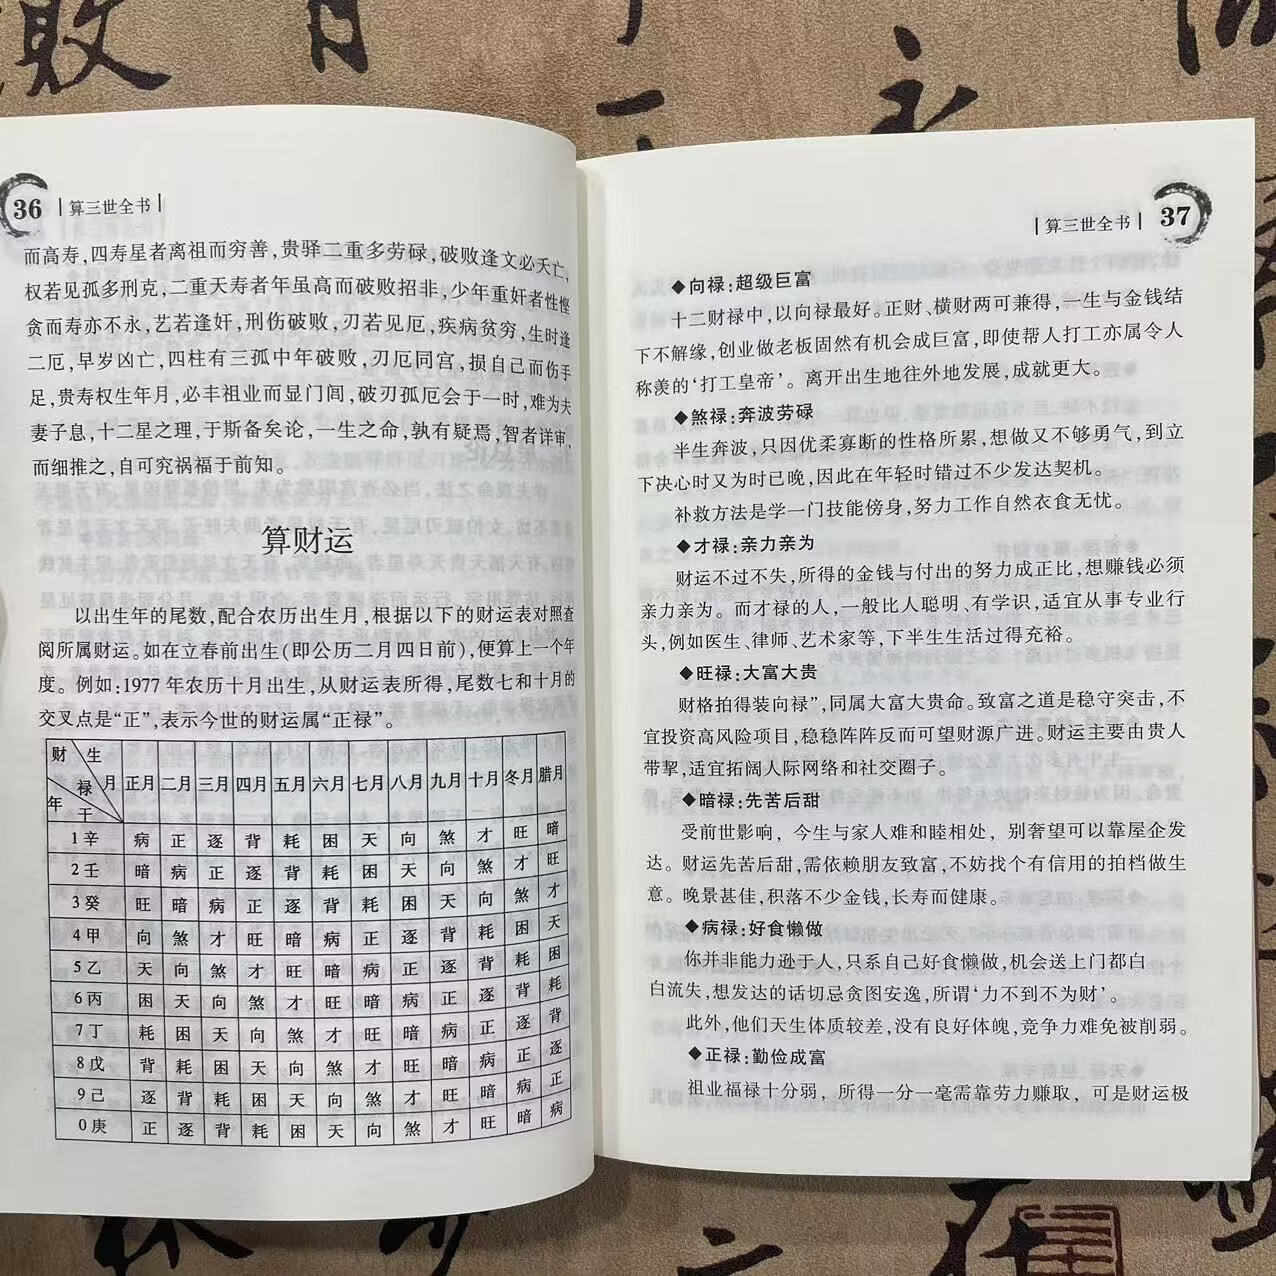 36 算三世全书
而高寿,四寿星者离祖而穷善,贵驿二重多劳碌,破败逢文必夭亡,
权若见孤多刑克,二重天寿者年虽高而破败招非,少年重奸者性悭
贪而寿亦不永,艺若逢奸,刑伤破败,刃若见厄,疾病贫穷,生时逢
二厄,早岁凶亡,四柱有三孤中年破败,刃厄同宫,损自己而伤手
足,贵寿权生年月,必丰祖业而显门闾,破刃孤厄会于一时,难为夫
妻子息,十二星之理,于斯备矣论,一生之命,孰有疑焉,智者详审,
而细推之,自可究祸福于前知。
算财运
以出生年的尾数,配合农历出生月,根据以下的财运表对照查
阅所属财运。如在立春前出生(即公历二月四日前),便算上一个年
度。例如:1977年农历十月出生,从财运表所得,尾数七和十月的
交叉点是“正”,表示今世的财运属“正禄”。
财 生 禄 月 年 干 正月 二月 三月 四月 五月 六月 七月 八月 九月 十月 冬月 腊月
1辛 病 正 逐 背 耗 困 天 向 煞 才 旺 暗
2壬 暗 病 正 逐 背 耗 困 天 向 煞 才 旺
3癸 旺 暗 病 正 逐 背 耗 困 天 向 煞 才
4甲 向 煞 才 旺 暗 病 正 逐 背 耗 困 天
5乙 天 向 煞 才 旺 暗 病 正 逐 背 耗 困
6丙 困 天 向 煞 才 旺 暗 病 正 逐 背 耗
7丁 耗 困 天 向 煞 才 旺 暗 病 正 逐 背
8戊 背 耗 困 天 向 煞 才 旺 暗 病 正 逐
9己 逐 背 耗 困 天 向 煞 才 旺 暗 病 正
0庚 正 逐 背 耗 困 天 向 煞 才 旺 暗 病
算三世全书 37
◆向禄:超级巨富
十二财禄中,以向禄最好。正财、横财两可兼得,一生与金钱结
下不解缘,创业做老板固然有机会成巨富,即使帮人打工亦属令人
称羡的‘打工皇帝’。离开出生地往外地发展,成就更大。
◆煞禄:奔波劳碌
半生奔波,只因优柔寡断的性格所累,想做又不够勇气,到立
下决心时又为时已晚,因此在年轻时错过不少发达契机。
补救方法是学一门技能傍身,努力工作自然衣食无忧。
◆才禄:亲力亲为
财运不过不失,所得的金钱与付出的努力成正比,想赚钱必须
亲力亲为。而才禄的人,一般比人聪明、有学识,适宜从事专业行
头,例如医生、律师、艺术家等,下半生生活过得充裕。
◆旺禄:大富大贵
财格拍得装向禄”,同属大富大贵命。致富之道是稳守突击,不
宜投资高风险项目,稳稳阵阵反而可望财源广进。财运主要由贵人
带挈,适宜拓阔人际网络和社交圈子。
◆暗禄:先苦后甜
受前世影响,今生与家人难和睦相处,别奢望可以靠屋企发
达。财运先苦后甜,需依赖朋友致富,不妨找个有信用的拍档做生
意。晚景甚佳,积落不少金钱,长寿而健康。
◆病禄:好食懒做
你并非能力逊于人,只系自己好食懒做,机会送上门都白
白流失,想发达的话切忌贪图安逸,所谓‘力不到不为财’。
此外,他们天生体质较差,没有良好体魄,竞争力难免被削弱。
◆正禄:勤俭成富
祖业福禄十分弱,所得一分一毫需靠劳力赚取,可是财运极